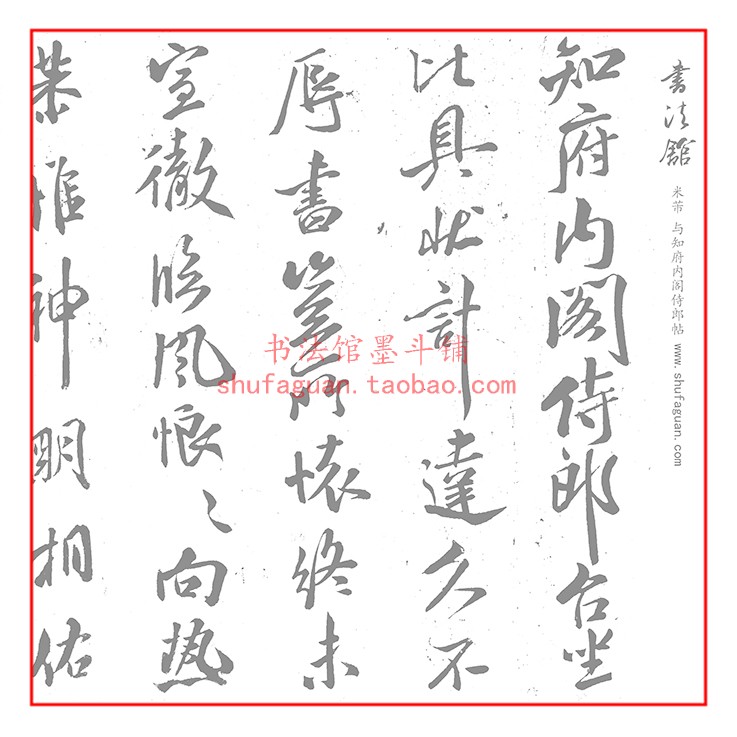 书法馆
米芾 与知府内阁侍郎帖 www.shufaguan.com
知府内阁侍郎台坐
比具状計達久不
辱書豈所懐終未
宣徹临風恨〻向热
恭惟神明相佑
书法馆墨斗铺
shufaguan.taobao.com